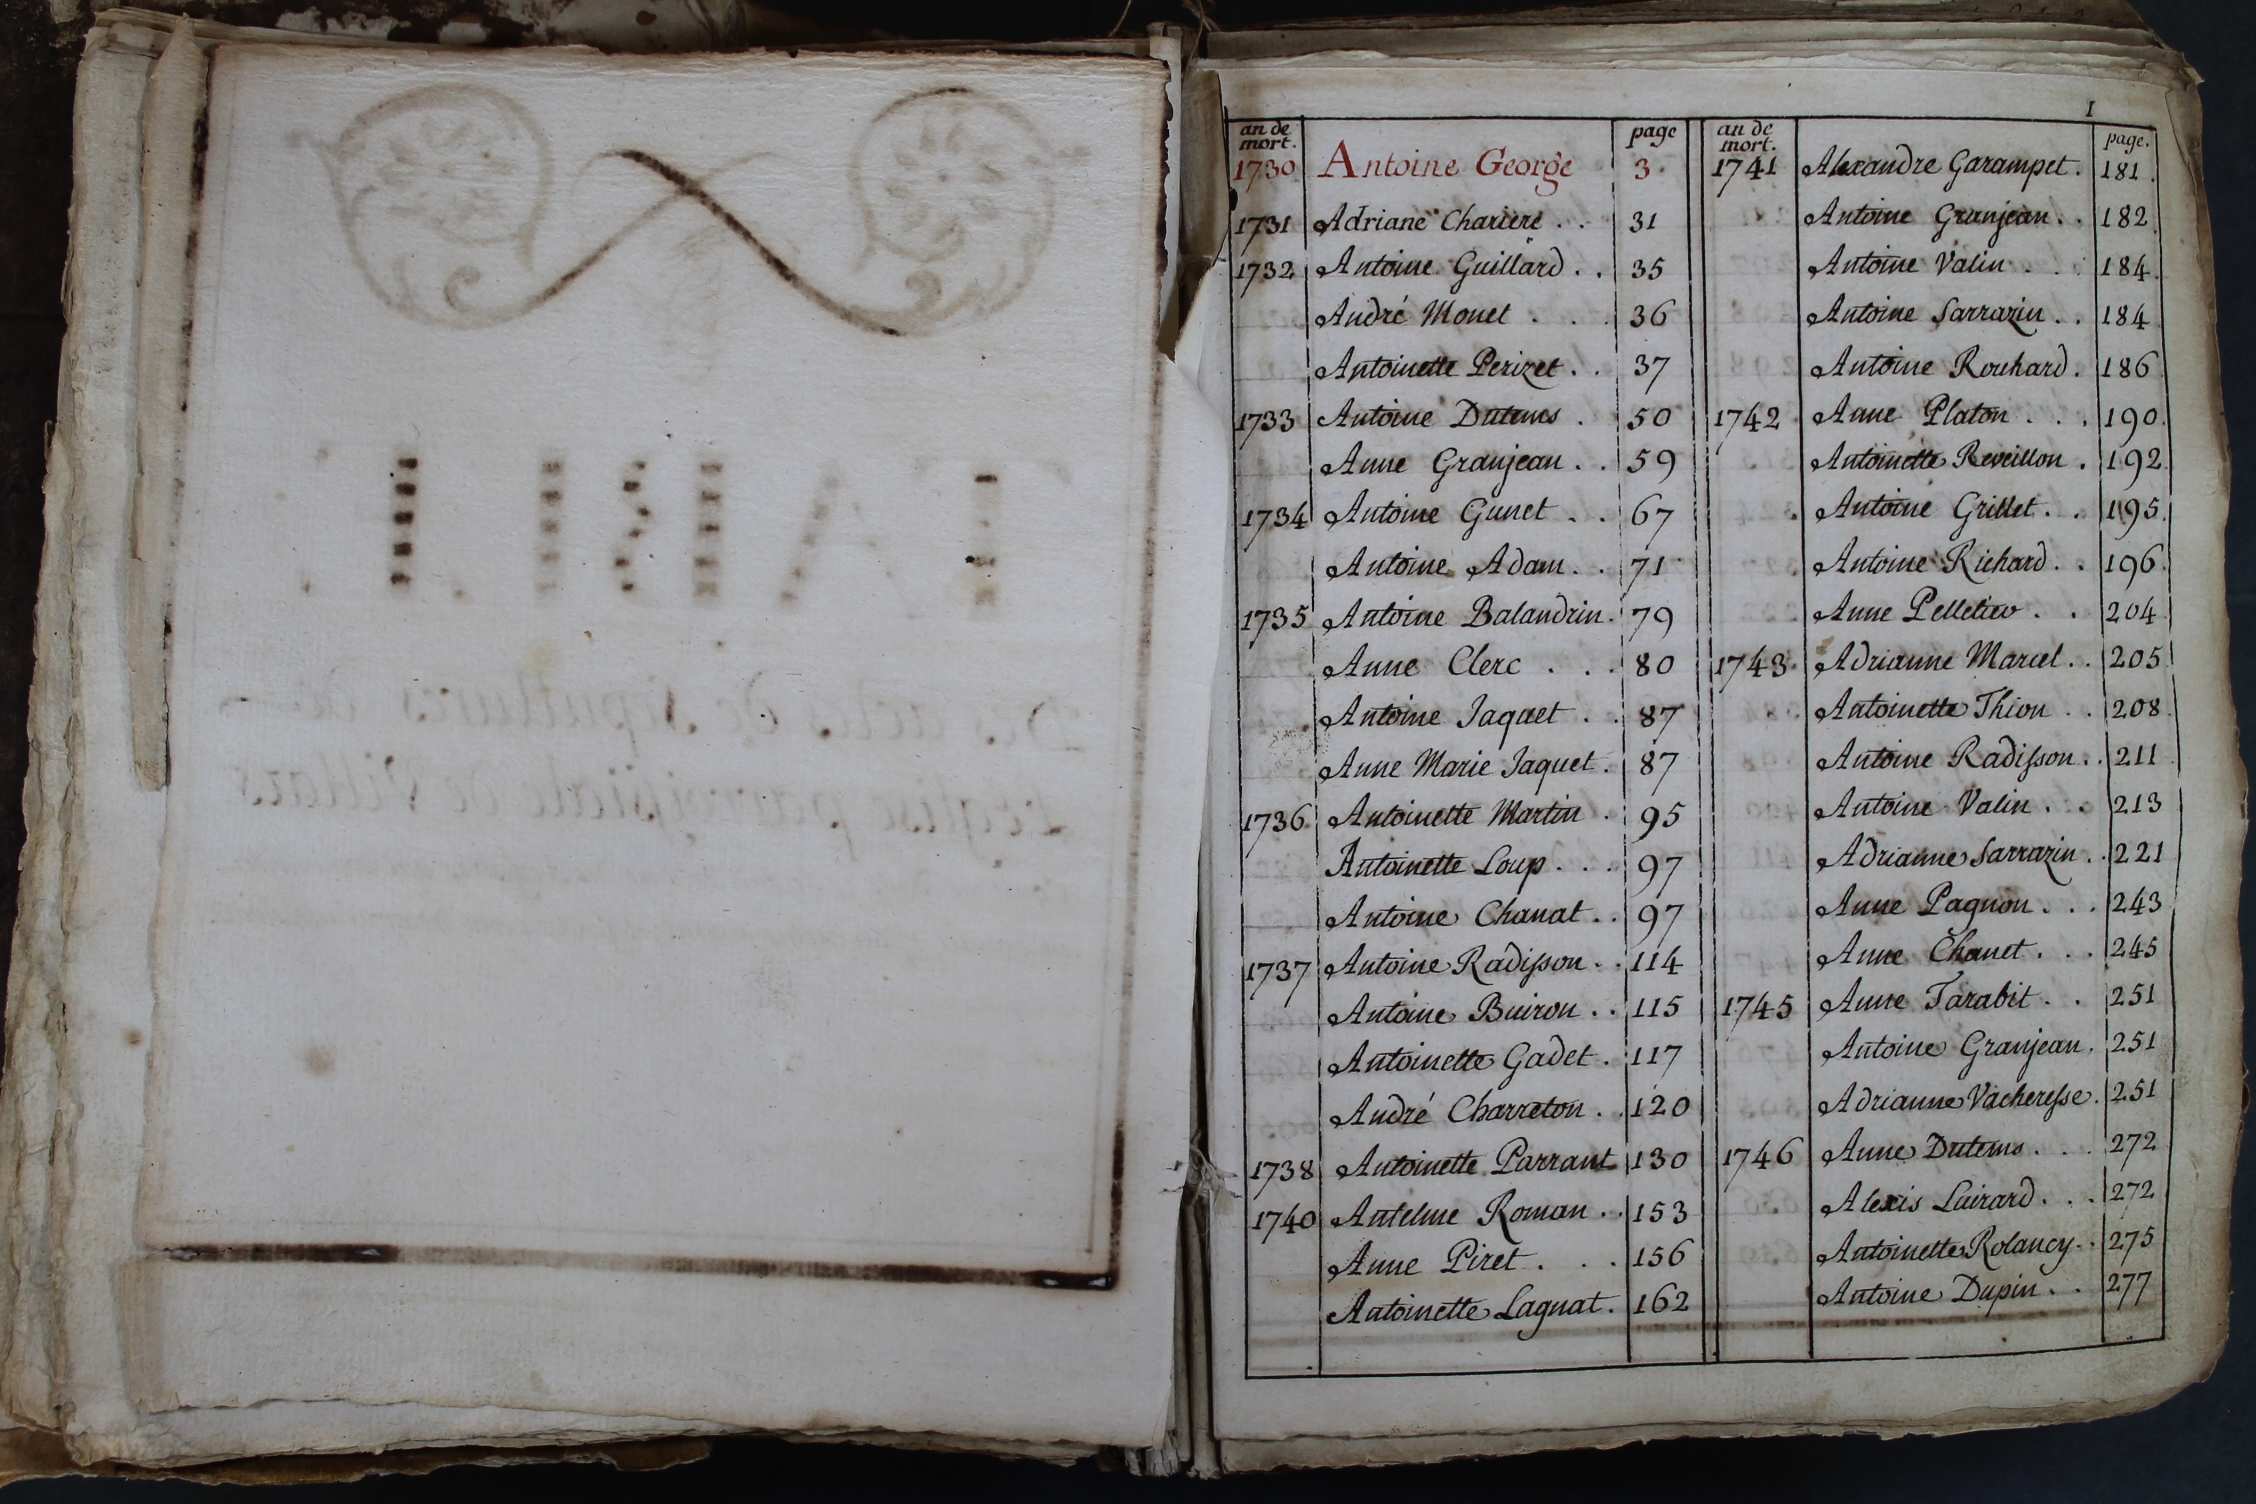 I
an de mort. page
1730 Antoine George 3.
1731 Adriane Chariere . . 31
1732 Antoine Guillard . . 35
André Monet . . . 36
Antoinette Perizet . . 37
1733 Antoine Dutems . 50
Anne Granjean . . 59
1734 Antoine Gunet . . 67
Antoine Adam . . 71
1735 Antoine Balandrin . 79
Anne Clerc . . . 80
Antoine Jaquet . . 87
Anne Marie Jaquet . 87
1736 Antoinette Martin . 95
Antoinette Loup . . . 97
Antoine Chanat . . 97
1737 Antoine Radisson . . 114
Antoine Buiron . . 115
Antoinette Gadet . 117
André Charreton . . 120
1738 Antoinette Parrant 130
1740 Antelme Roman . . 153
Anne Piret . . . 156
Antoinette Lagnat . 162
an de mort. page.
1741 Alexandre Garampet . 181
Antoine Granjean . . 182
Antoine Valin . . . 184
Antoine Sarrazin . . 184
Antoine Rouhard . 186
1742 Anne Platon . . . 190
Antoinette Reveillon . 192
Antoine Grillet . . 195
Antoine Richard . . 196
Anne Pelletier . . 204
1743 Adrianne Marcel . . 205
Antoinette Thion . . 208
Antoine Radisson . . 211
Antoine Valin . . 213
Adrianne Sarrazin . . 221
Anne Pagnon . . . 243
Anne Chanet . . . 245
1745 Anne Tarabit . . 251
Antoine Granjean . 251
Adrianne Vacheresse . 251
1746 Anne Dutems . . . 272
Alexis Luirard . . . 272
Antoinette Rolancy . . 275
Antoine Dupin . . 277